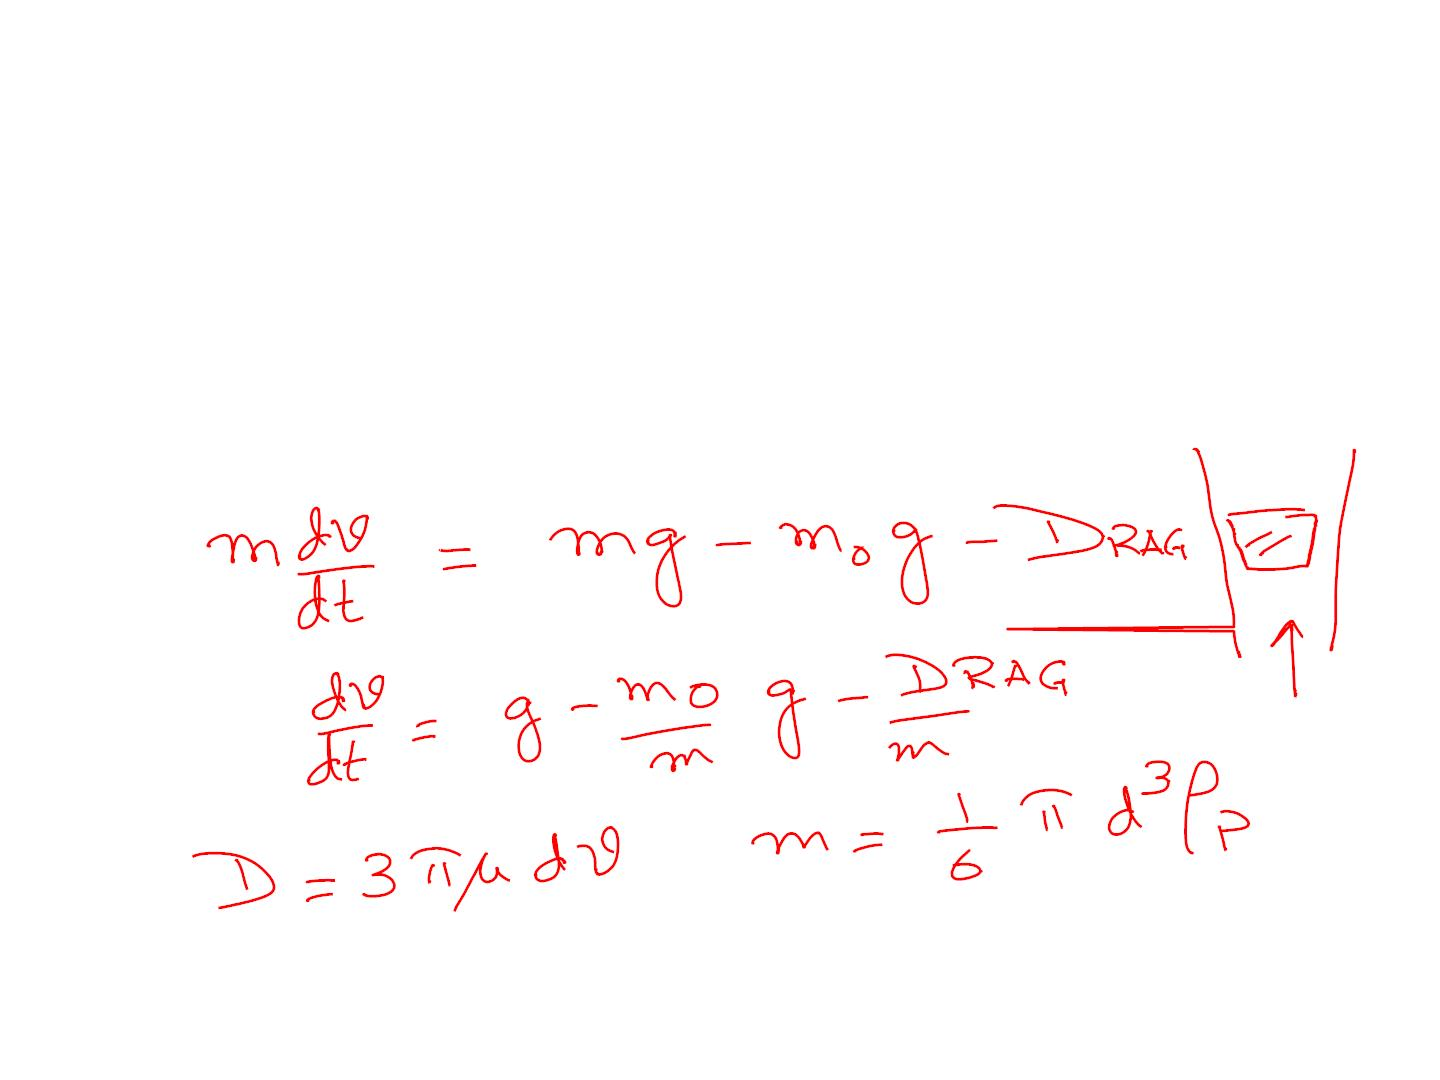 m dv/dt = mg - m₀g - DRAG
dv/dt = g - m₀/m g - DRAG/m
D = 3πμdv m = 1/6 π d³ρₚ